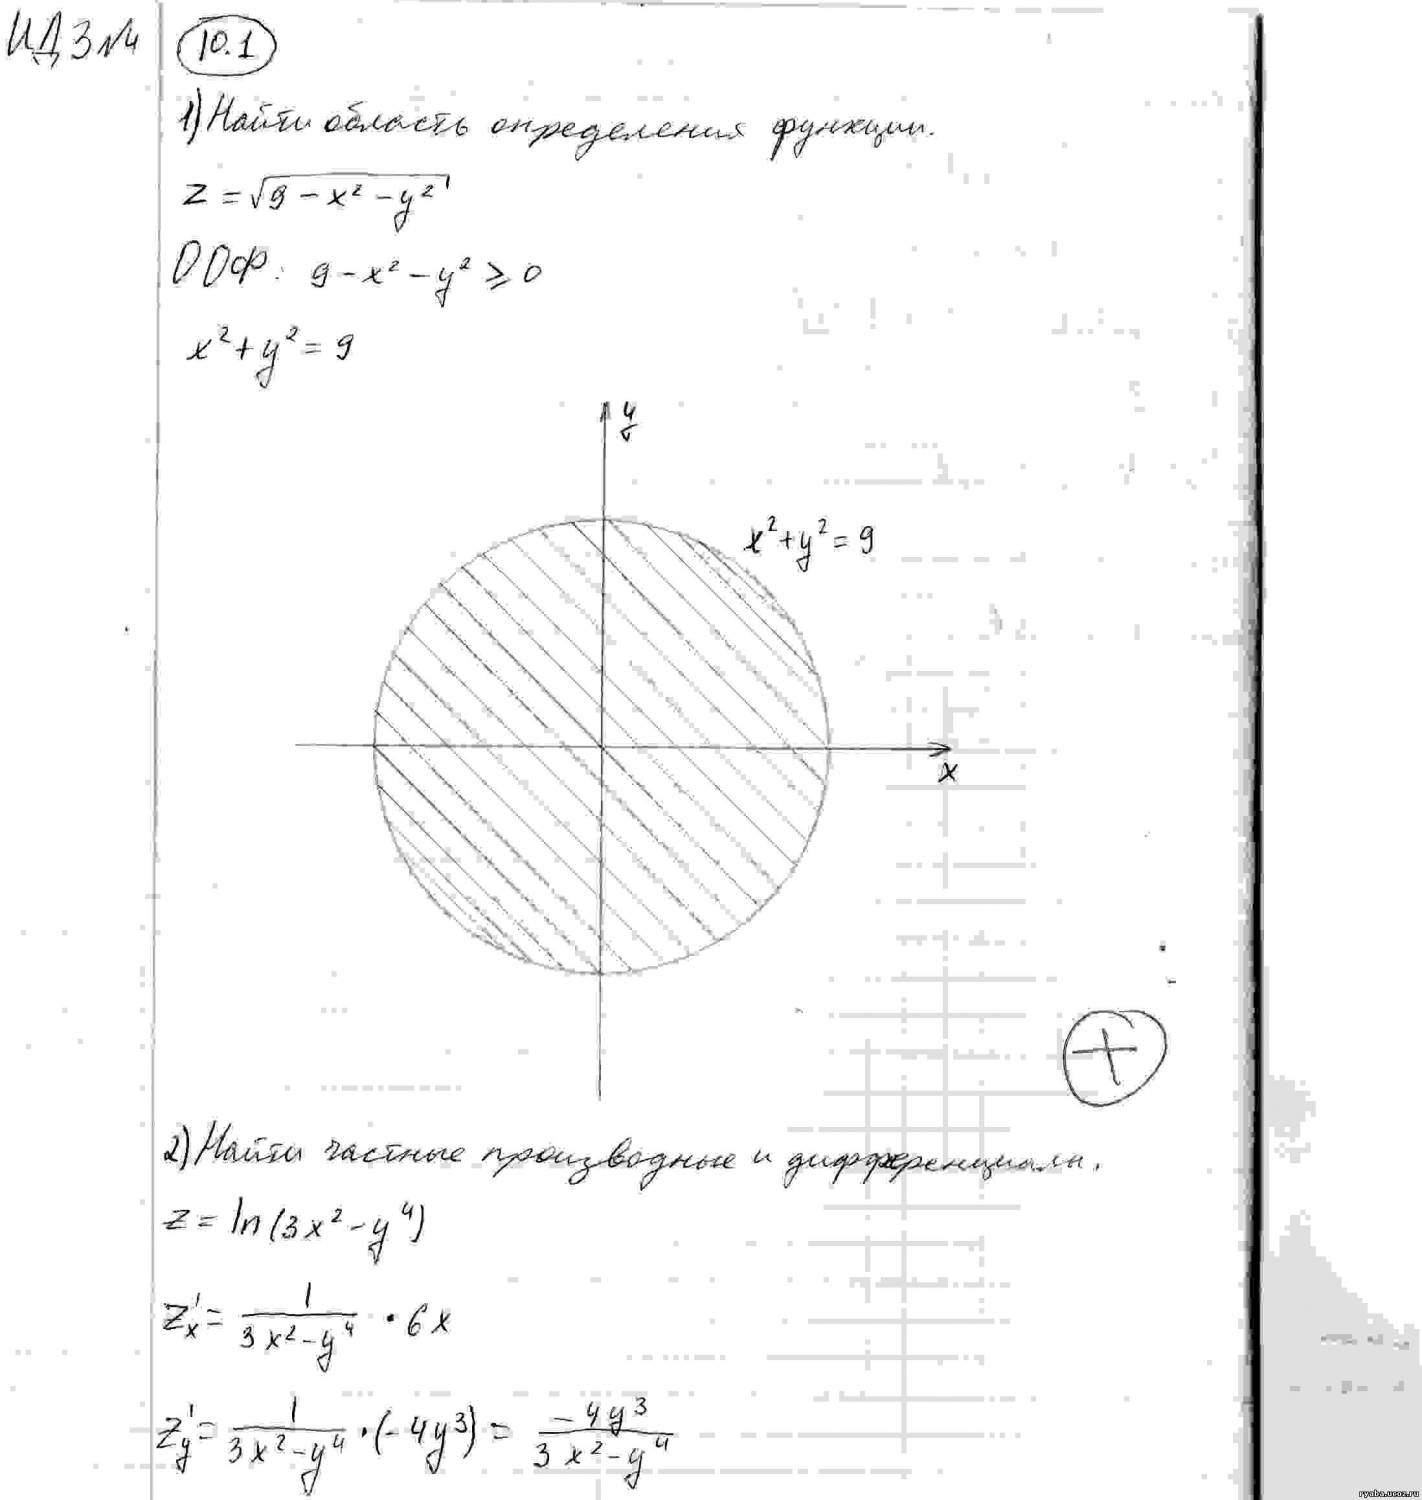 ИДЗ №4
10.1
1) Найти область определения функции.
z = √(9 - x² - y²)
ООФ: 9 - x² - y² ⩾ 0
x² + y² = 9
y
x² + y² = 9
x
+
2) Найти частные производные и дифференциалы.
z = ln(3x² - y⁴)
z'ₓ = 1/(3x² - y⁴) · 6x
z'_y = 1/(3x² - y⁴) · (-4y³) = -4y³/(3x² - y⁴)
ryaba.ucoz.ru